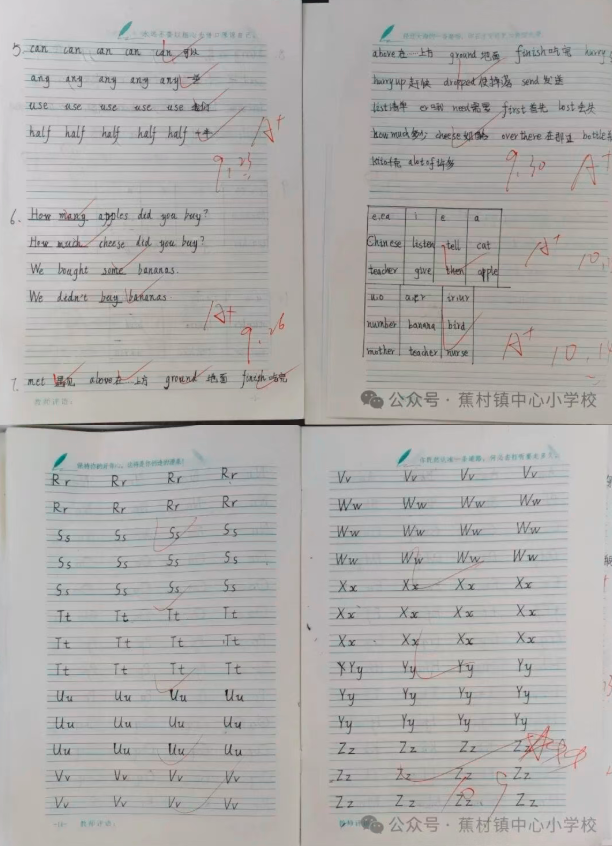 5. can can can can can 可以
any any any any any 一些
use use use use use 我们
half half half half half 一半
A+
9.25
6. How many apples did you buy?
How much cheese did you buy?
We bought some bananas.
We didn't buy bananas
A+
9.26
7. met 遇见 above在…上方 ground 地面 finish 吃完
教师评语:
above在…上方 ground 地面 finish吃完 hurry
hurry up 赶快 dropped 使掉落 send 发送
list 清单 need 需要 first 首先 lost 丢失
how much 多少 cheese 奶酪 over there 在那边 bottle
a lot of 许多
9.30 A+
e.ea i e a
Chinese listen tell cat
teacher give then apple
u.o a.er ir.ur
number banana bird
mother teacher nurse
A+
A+
公众号·蕉村镇中心小学校
Rr Rr Rr Rr
Rr Rr Rr Rr
Ss Ss Ss Ss
Ss Ss Ss Ss
Ss Ss Ss Ss
Tt Tt Tt Tt
Tt Tt Tt Tt
Tt Tt Tt Tt
Uu Uu Uu Uu
Uu Uu Uu Uu
Uu Uu Uu Uu
Vv Vv Vv Vv
Vv Vv Vv Vv
教师评语:
Vv Vv Vv Vv
Ww Ww Ww Ww
Ww Ww Ww Ww
Ww Ww Ww Ww
Xx Xx Xx Xx
Xx Xx Xx Xx
Xx Xx Xx Xx
XYy Yy Yy Yy
Yy Yy Yy Yy
Yy Yy Yy Yy
Zz Zz Zz Zz
Zz Zz Zz Zz
Zz Zz Zz Zz
公众号·蕉村镇中心小学校